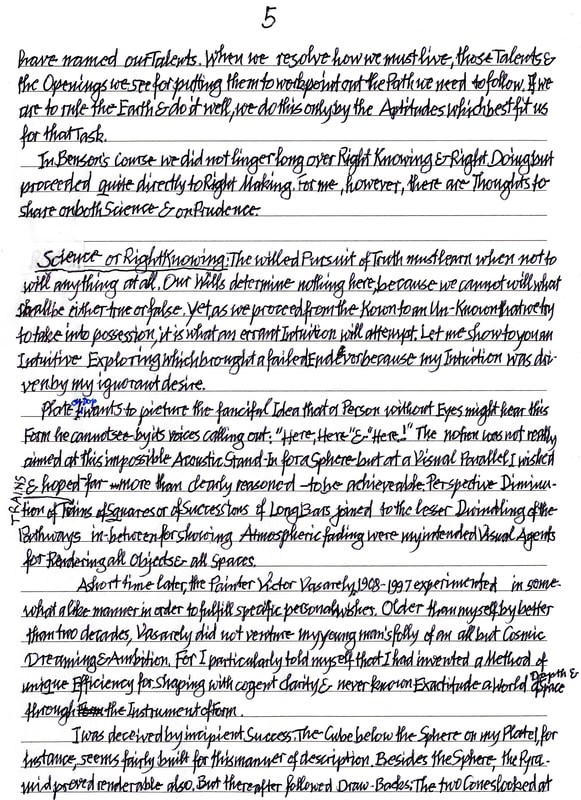 5
have named our Talents. When we resolve how we must live, those Talents &
the Openings we see for putting them to work point out the Path we need to follow. If we
are to rule the Earth & do it well, we do this only by the Aptitudes which best fit us
for that Task.
In Benson's Course we did not linger long over Right Knowing & Right Doing but
proceeded quite directly to Right Making. For me, however, there are Thoughts to
share on both Science & on Prudence.
Science or Right Knowing: The willed Pursuit of Truth must learn when not to
will anything at all. Our Wills determine nothing here, because we cannot will what
shall be either true or false. Yet, as we proceed from the Kown to an Un-Known that we try
to take into possession, it is what an errant Intuition will attempt. Let me show to you an
Intuitive Exploring which brought a failed Endevor because my Intuition was dri-
ven by my ignorant desire.
Plate 1 on top wants to picture the fanciful Idea that a Person without Eyes might hear this
Form he cannot see by its voices calling out: "Here, Here" & "Here!" The notion was not really
aimed at this impossible Acoustic Stand-In for a Sphere but at a Visual Parallel I wished
& hoped for - more than clearly reasoned - to be achieveable. Perspective Diminu-
TRAINS
tion of Trains of Squares or of Successions of Long Bars joined to the lesser Dwindling of the
Pathways in-between for showing Atmospheric fading were my intended Visual Agents
for Rendering all Objects & all Spaces.
A short time later, the Painter Victor Vasarely, 1908-1997 experimented in some-
what alike manner in order to fulfill specific personal wishes. Older than myself by better
than two decades, Vasarely did not venture my young man's folly of an all but Cosmic
Dreaming & Ambition. For I particularly told myself that I had invented a Method of
unique Efficiency for shaping with cogent clarity & never known Exactitude a World Depth & Space
through the Instrument of Form.
I was deceived by incipient Success. The Cube below the Sphere on my Plate I, for
Instance, seems fairly built for this manner of description. Besides the Sphere, the Pyra-
mid proved renderable also. But thereafter followed Draw-Backs: The two Cones looked at